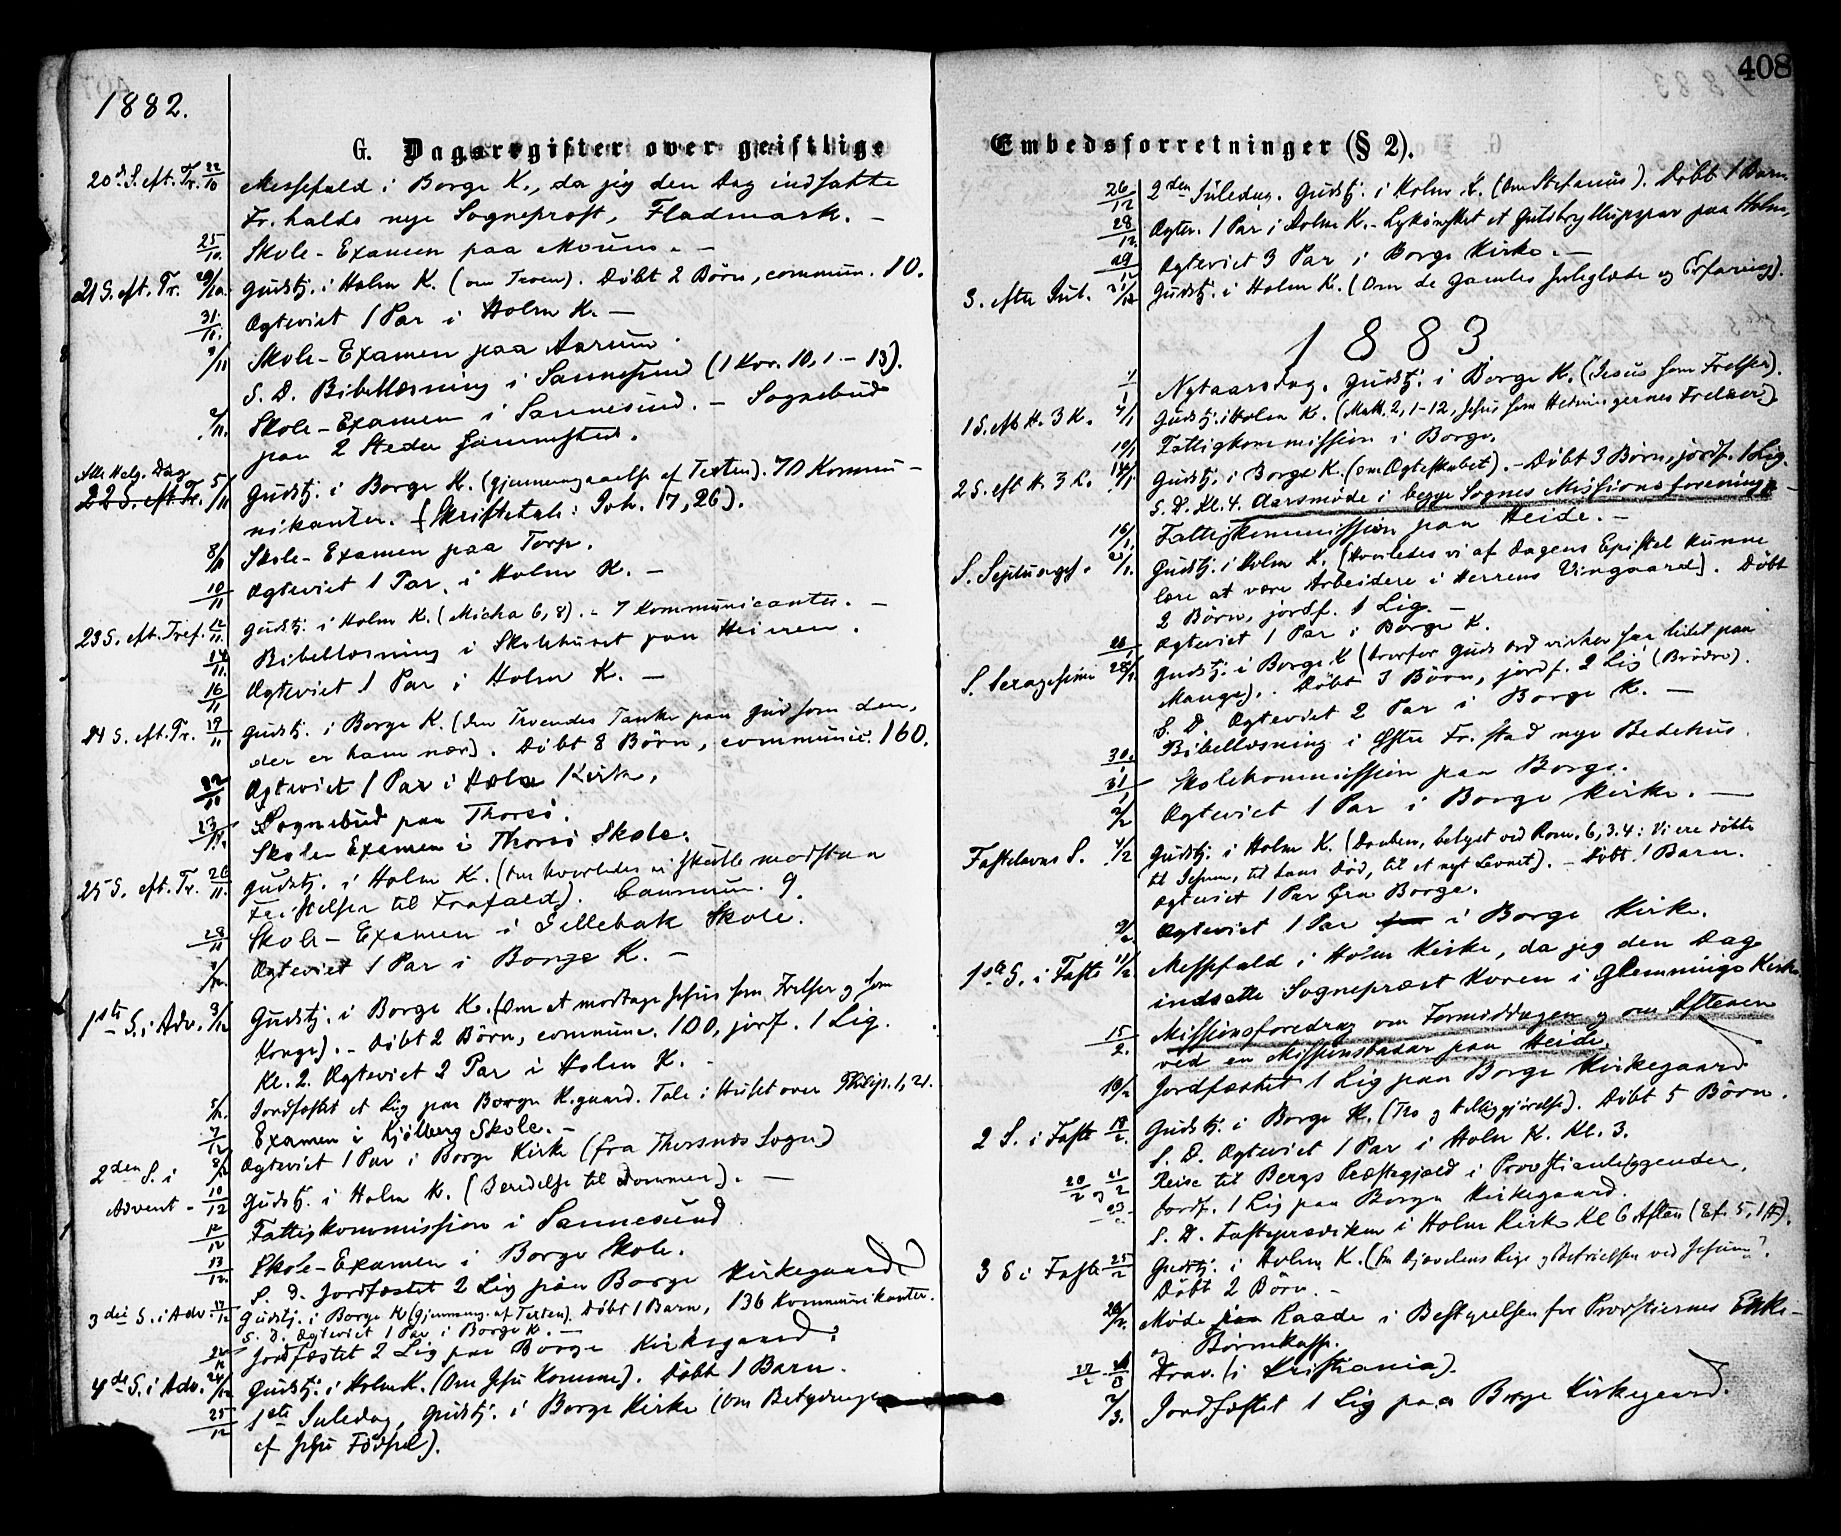 1882.
G. Dagsregister over geistlige
20d. S. eft. Tr. 22/10 Messefald i Borge K., da jeg den Dag indsatte
Fr.halds nye Sogneprost, Fladmark. -
25/10. Skole-Examen paa Moum. -
21 S. eft. Tr. 29/10. Gudstj. i Holm K. (om Troen). Döbt 2 Börn, commun. 10.
31/10. Ægteviet 1 Par i Holm K. -
1/11 Skole-Examen paa Aarum.
S. D. Bibellæsning i Sannesund (1 Kor. 10, 1. - 13).
2/11. Skole-Examen i Sannesund. - Sognebud
paa 2 Steder sammesteds.
Alle Helg. Dag
22 S. eft. Tr. 5/11 Gudstj. i Borge K. (gjennemgaaelse af Texten). 70 Kommu-
nikanter. (Skriftetale: Joh. 17, 26).
8/11 Skole-Examen paa Torp.
10/11 Ægteviet 1 Par i Holm K. -
23 S. eft. Tref. 12/11. Gudstj. i Holm K. (Micha 6, 8). - 7 Kommunicanter. -
14/11. Bibellæsning i Skolehuset paa Heieren.
16/11 Ægteviet 1 Par i Holm K. -
24 S. eft. Tr. 19/11 Gudstj. i Borge K. (den Troendes Tanke paa Gud som den,
der er ham nær). Döbt 8 Börn, communic. 160.
22/11 Ægteviet 1 Par i Holm Kirke.
23/11. Sognebud paa Thorsö.
Skole-Examen i Thorsö Skole.
25 S. eft. Tr. 26/11. Gudstj. i Holm K. (Om hvorledes vi skulle modstaa
Fristelser til Frafald). Commun. 9.
28/11 Skole-Examen i Sellebak Skole.
1/12. Ægteviet 1 Par i Borge K. -
1ste S. i Adv. 3/12 Gudstj. i Borge K. (Om at modtage Jesus som Frelser og som
Konge). - Döbt 2 Börn, commun. 100, jordf. 1 Lig.
Kl. 2. Ægteviet 2 Par i Holm K. -
5/12. Jordfæstet et Lig paa Borge K.gaard. Tale i Huset over Philip. 1, 21.
7/12 Examen i Kjölberg Skole. -
8/12 Ægteviet 1 Par i Borge Kirke (fra Thorsnæs Sogn)
2den S. i
Advent - 10/12 Gudstj. i Holm K. (Beredelse til Dommen). -
12/12 Fattigkommission i Sannesund
13/12. Skole-Examen i Borge Skole.
S. D. Jordfæstet 2 Lig paa Borge Kirkegaard
3die S. i Adv. 17/12 Gudstj. i Borge K. (Gjennemg. af Texten). Döbt 1 Barn, 136 Kommunikanter.
S. D. Ægteviet 1 Par i Borge K. -
22/12 Jordfæstet 2 Lig paa Borge Kirkegaard.
4de S. i Adv. 24/12 Gudstj. i Holm K. (Om Jesu Komme). Döbt 1 Barn.
25/12 1ste Juledag, Gudstj. i Borge Kirke (Om Betydningen
af Jesu Födsel).
408
Embedsforretninger (§ 2).
26/12 2den Juledag. Gudstj. i Holm K. (Om Stefanus). Döbt 1 Barn
28/12. Ægtev. 1 Par i Holm K. - Lykönsket et Guldbryllupspar paa Holm.
29/12 Ægteviet 3 Par i Borge Kirke. -
S. efter Jul. 31/12 Gudstj. i Holm K. (Om de Gamles Juleglæde og Erfaring).
1883
1/1 Nytaarsdag. Gudstj. i Borge K. (Jesus som Frelser).
1 S. eft. H. 3 K. 7/1 Gudstj. i Holm K. (Matt. 2, 1-12, Jesus som Hedningernes Frelser)
10/1 Fattigkommission i Borge.
2 S. eft. H. 3 K. 14/1 Gudstj. i Borge K. (om Ægteskabet). - Döbt 3 Börn, jordf. 1 Lig.
S. D. Kl. 4. Aarsmöde i begge Sognes Missionsforening. -
16/1. Fattigkommission paa Heide. -
S. Septuages. 21/1. Gudstj. i Holm K. (Hvorledes vi af Dagens Epistel kunne
lære at være Arbeidere i Herrens Viingaard). Döbt
2 Börn, jordf. 1 Lig. -
26/1 Ægteviet 1 Par i Borge K.
S. Sexagesima 28/1. Gudstj. i Borge K. (hvorfor Guds Ord virker saa lidet paa
Mange). Döbt 3 Börn, jordf. 2 Lig (Brödre).
S. D. Ægteviet 2 Par i Borge K. -
30/1. Bibellæsning i Östre Fr.stad nye Bedehus.
31/1 Skolekommission paa Borge.
2/2 Ægteviet 1 Par i Borge Kirke. -
Fastelavns S. 4/2 Gudstj. i Holm K. (Daaben, belyst ved Rom. 6, 3.4: Vi ere döbte
til Jesum, til hans Död, til et nyt Levnet). - Döbt 1 Barn.
Ægteviet 1 Par fra Borge.
9/2 Ægteviet 1 Par i Borge Kirke.
1ste S. i Faste 11/2 Messefald i Holm Kirke, da jeg den Dag
indsatte Sognepræst Koren i Glemminge Kirke
15/2. Missionsforedrag om Formiddagen og om Aftenen
ved en Missionsbasar paa Heide.
16/2 Jordfæstet 1 Lig paa Borge Kirkegaard
2 S. i Faste 18/2. Gudstj. i Borge K. (Tro og Helliggjörelse). Döbt 5 Börn.
S. D. Ægteviet 1 Par i Holm K. Kl. 3.
20/2 og 21/2 Reise til Bergs Præstegjæld i Provstianliggender.
23/2 Jordf. 1 Lig paa Borge Kirkegaard.
S. D. Fasteprædiken i Holm Kirke Kl 6 Aften (Ef. 5, 14).
3 S i Faste 25/2 Gudstj. i Holm K. (Om Djævelens Rige og Befrielsen ved Jesum).
Döbt 2 Börn. -
26/2. Möde paa Raade i Bestyrelsen for Provstiernes Enke-
og Börnekasse.
27/2 Frav. (i Kristiania).
7/3. Jordfæstet 1 Lig paa Borge Kirkegaard.